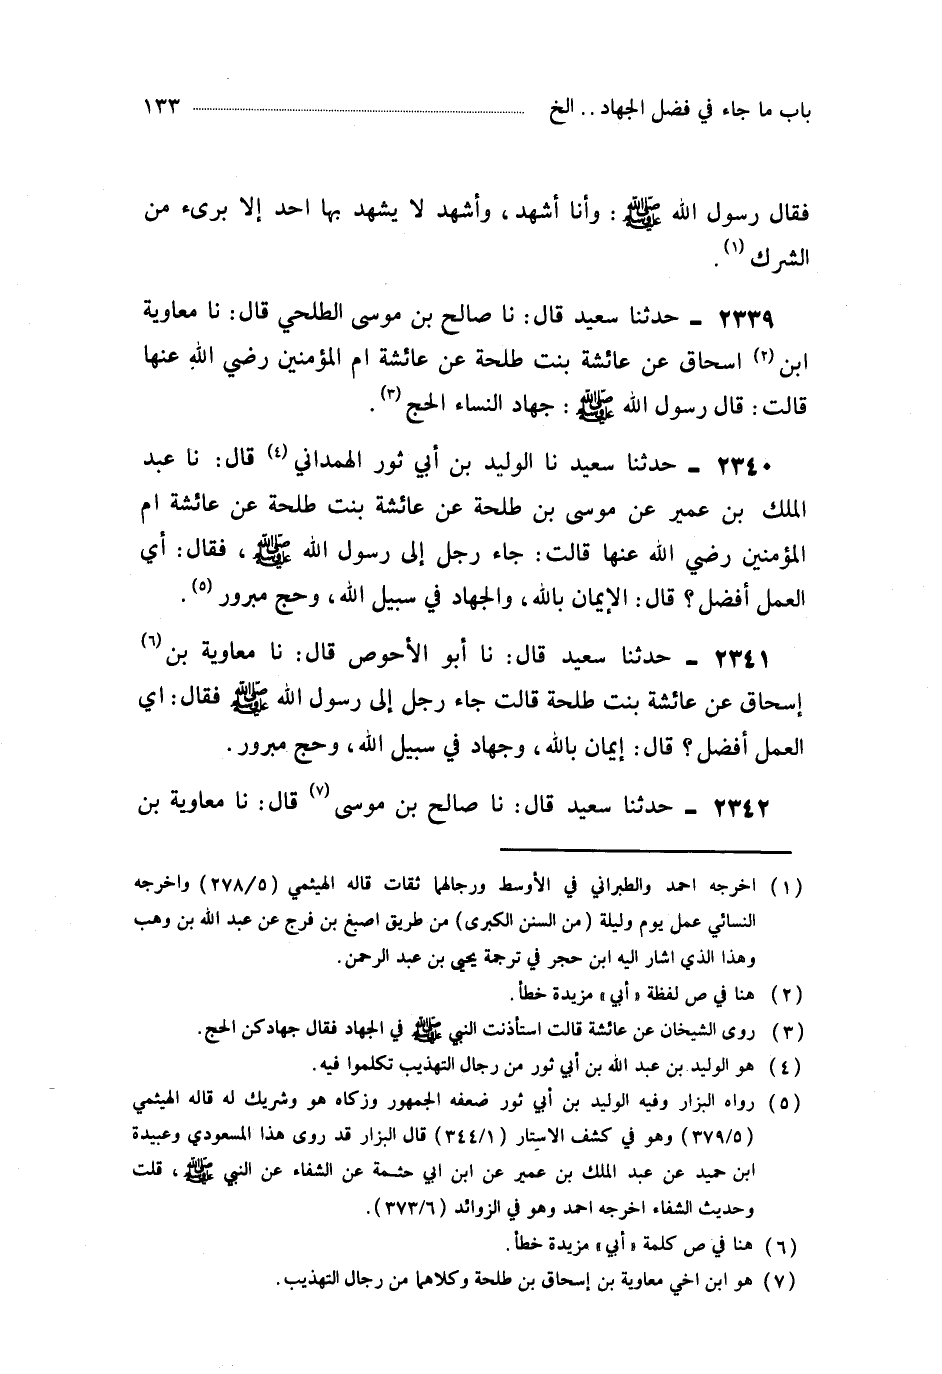 باب ما جاء في فضل الجهاد .. الخ ........ ١٣٣
فقال رسول الله ﷺ : وأنا أشهد، وأشهد لا يشهد بها احد إلا برىء من
الشرك (١) .
٢٣٣٩ ـ حدثنا سعيد قال: نا صالح بن موسى الطلحي قال: نا معاوية
ابن (٢) اسحاق عن عائشة بنت طلحة عن عائشة ام المؤمنين رضي الله عنها
قالت: قال رسول الله ﷺ : جهاد النساء الحج (٣) .
٢٣٤٠ ـ حدثنا سعيد نا الوليد بن أبي ثور الهمداني (٤) قال: نا عبد
الملك بن عمير عن موسى بن طلحة عن عائشة بنت طلحة عن عائشة ام
المؤمنين رضي الله عنها قالت: جاء رجل إلى رسول الله ﷺ ، فقال: أي
العمل أفضل؟ قال: الإيمان بالله، والجهاد في سبيل الله، وحج مبرور (٥) .
٢٣٤١ ـ حدثنا سعيد قال: نا أبو الأحوص قال: نا معاوية بن (٦)
إسحاق عن عائشة بنت طلحة قالت جاء رجل إلى رسول الله ﷺ فقال: اي
العمل أفضل؟ قال: إيمان بالله، وجهاد في سبيل الله، وحج مبرور.
٢٣٤٢ ـ حدثنا سعيد قال: نا صالح بن موسى (٧) قال: نا معاوية بن
(١) اخرجه احمد والطبراني في الأوسط ورجالهما ثقات قاله الهيثمي (٢٧٨/٥) واخرجه
النسائي عمل يوم وليلة (من السنن الكبرى) من طريق اصبغ بن فرج عن عبد الله بن وهب
وهذا الذي اشار اليه ابن حجر في ترجمة يحيى بن عبد الرحمن.
(٢) هنا في ص لفظة «أبي» مزيدة خطأ.
(٣) روى الشيخان عن عائشة قالت استأذنت النبي ﷺ في الجهاد فقال جهادكن الحج.
(٤) هو الوليد بن عبد الله بن أبي ثور من رجال التهذيب تكلموا فيه.
(٥) رواه البزار وفيه الوليد بن أبي ثور ضعفه الجمهور وزكاه هو وشريك له قاله الهيثمي
(٣٧٩/٥) وهو في كشف الاستار (٣٤٤/١) قال البزار قد روى هذا المسعودي وعبيدة
ابن حميد عن عبد الملك بن عمير عن ابن ابي حثمة عن الشفاء عن النبي ﷺ ، قلت
وحديث الشفاء اخرجه احمد وهو في الزوائد (٣٧٣/٦).
(٦) هنا في ص كلمة «أبي» مزيدة خطأ.
(٧) هو ابن اخي معاوية بن إسحاق بن طلحة وكلاهما من رجال التهذيب.